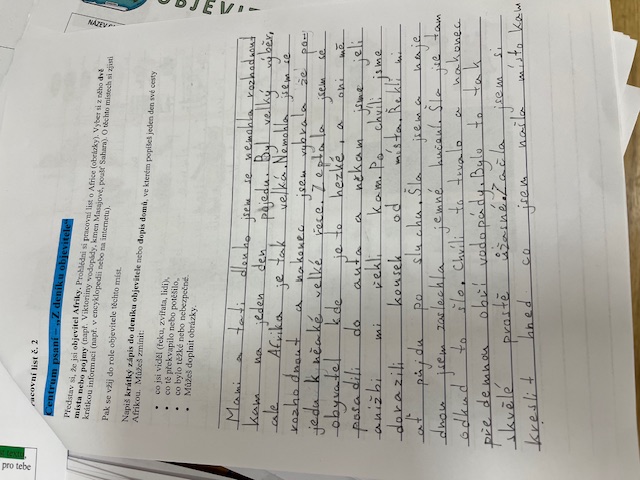 OBJEVIT
NÁZEV
Pracovní list č. 2
Centrum psaní – „Z deníku objevitele“
Představ si, že jsi objevitel Afriky. Prohlédni si pracovní list o Africe (obrázky). Vyber si z něho dvě
místa nebo pojmy (např. Viktoriiny vodopády, kmen Masajové, poušť Sahara). O těchto místech si zjisti
krátkou informaci (např. v encyklopedii nebo na internetu).
Pak se vžij do role objevitele těchto míst.
Napiš krátký zápis do deníku objevitele nebo dopis domů, ve kterém popíšeš jeden den své cesty
Afrikou. Můžeš zmínit:
• co jsi viděl (řeku, zvířata, lidi),
• co tě překvapilo nebo potěšilo,
• co bylo těžké nebo nebezpečné.
• Můžeš doplnit obrázky.
Mami a tati dlouho jsem se nemohla rozhodnout
kam na jeden den pojedu. Byl velký výběr,
ale Afrika je tak velká. Nemohla jsem se
rozhodnout a nakonec jsem vybrala že po-
jedu k něčaké velké řece. Zeptala jsem se
obyvatel kde je to hezké, a oni mě
posadili do auta a někam jsme jeli
anižbi mi řekli kam. Po chvíli jsme
dorazili kousek od místa. Řekli mi
ať půjdu po slucha. Šla jsem a naje
dnou jsem zaslechla jemné hučení. Šla jse tam
odkud to šlo. Chvíli to trvalo a nakonec
pře demnou obří vodopády. Bylo to tak
skvělé prostě úžasné! Začla jsem si
kreslit hned co jsem našla místo kam
pro tebe